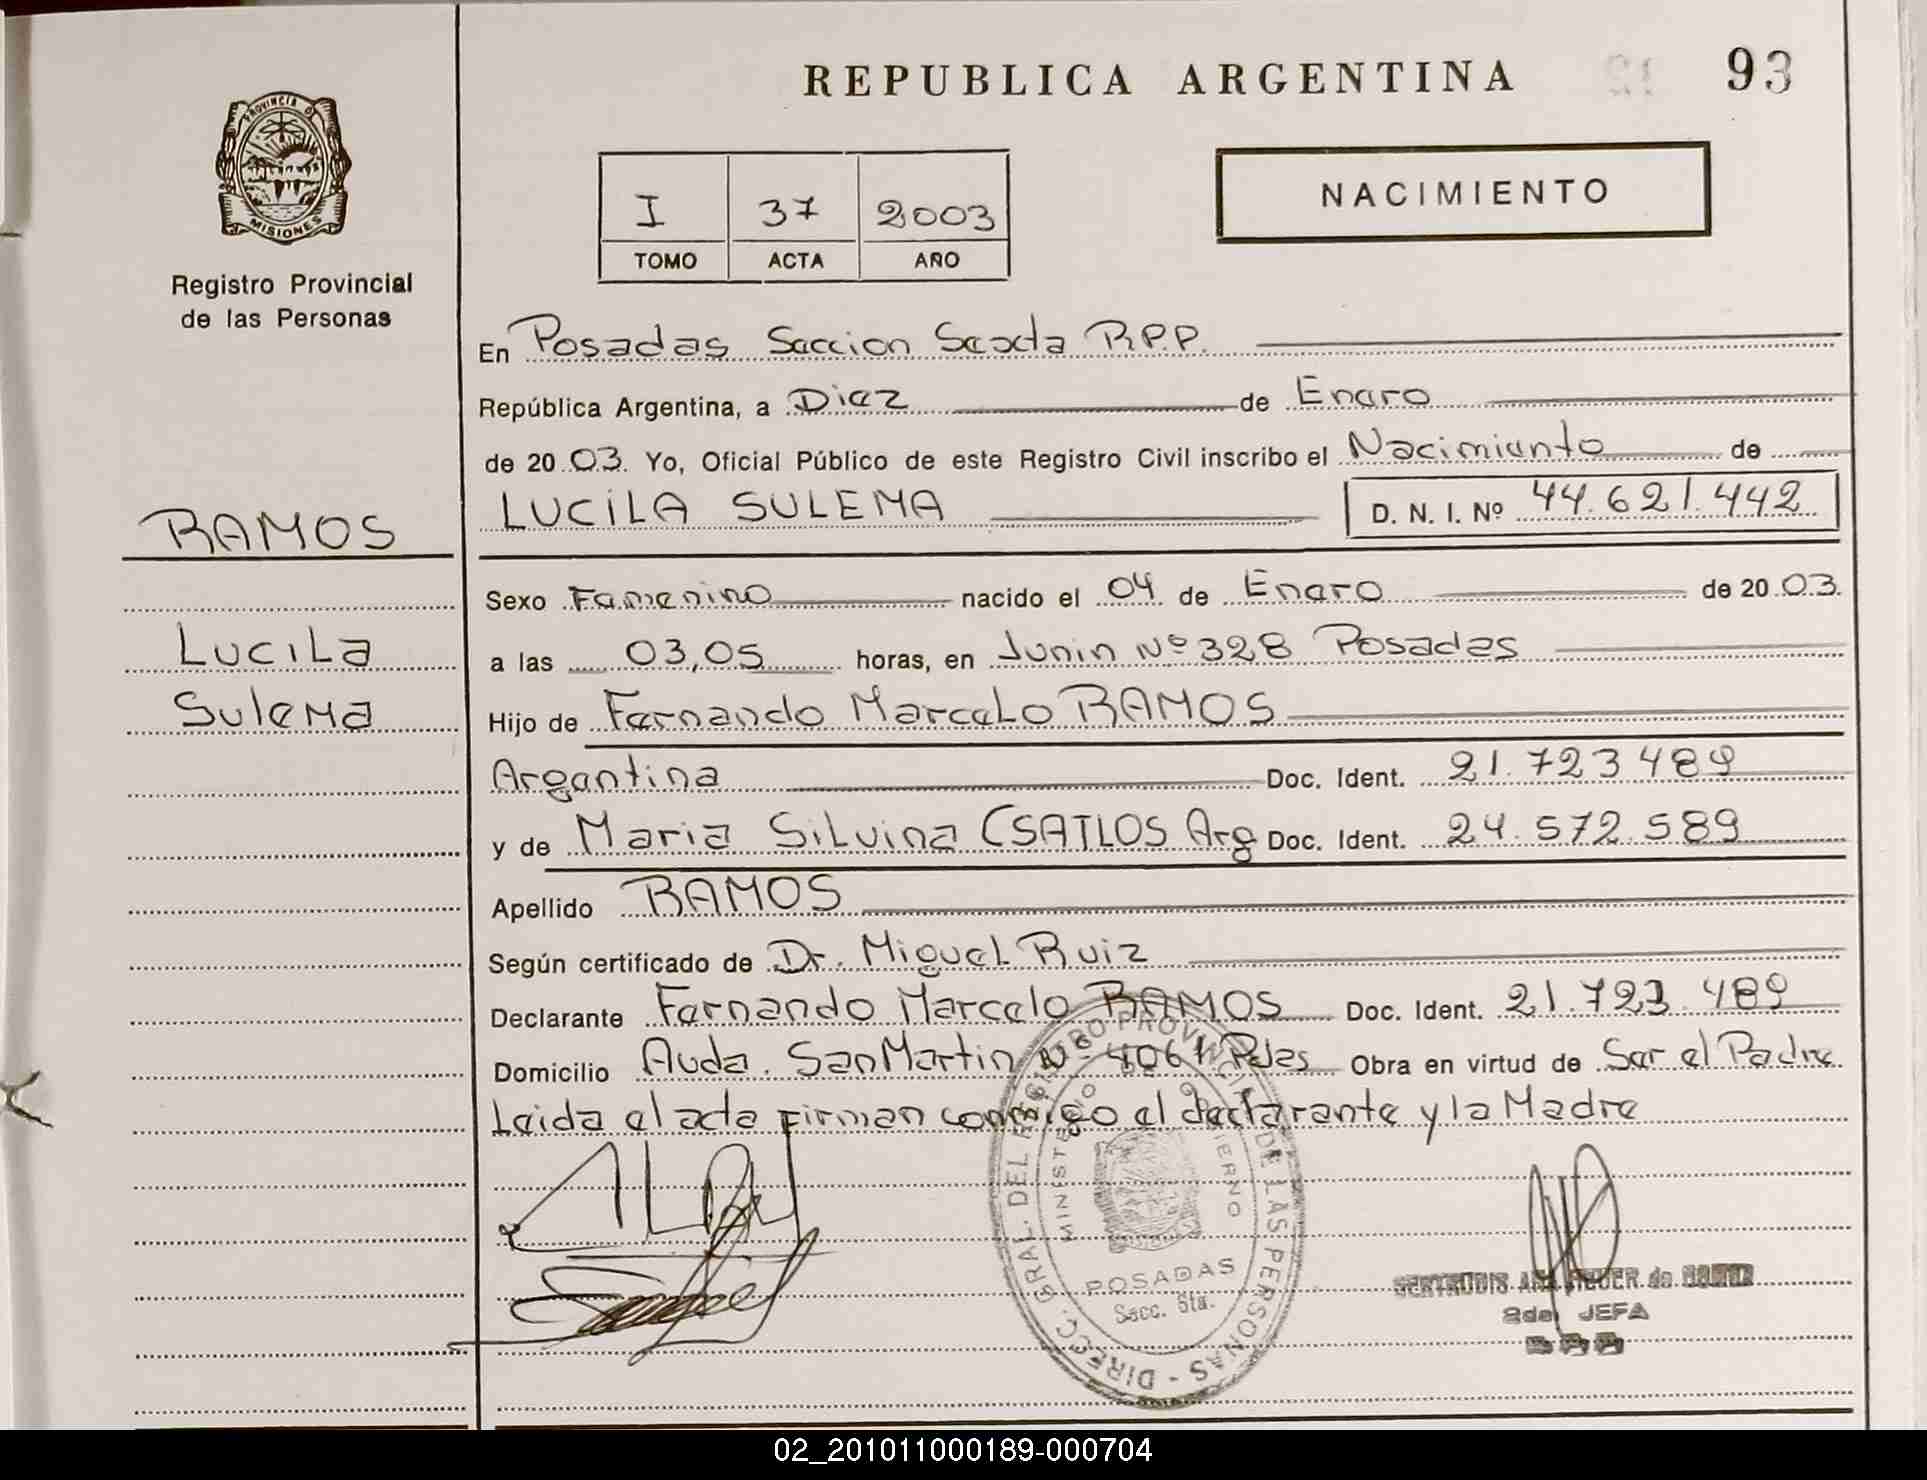 REPUBLICA ARGENTINA
93
PROVINCIA D
MISIONES
Registro Provincial
de las Personas
I 37 2003
TOMO ACTA AÑO
NACIMIENTO
En Posadas Seccion Sexta R.P.P.
República Argentina, a Diez de Enero
de 20 03. Yo, Oficial Público de este Registro Civil inscribo el Nacimiento de
LUCILA SULEMA D. N. I. Nº 44.621.442
RAMOS
Lucila
Sulema
Sexo Femenino nacido el 04 de Enero de 20 03.
a las 03,05 horas, en Junin Nº 328 Posadas
Hijo de Fernando Marcelo RAMOS
Argentina Doc. Ident. 21.723489
y de Maria Silvina CSATLOS Arg Doc. Ident. 24.572.589
Apellido RAMOS
Según certificado de Dr. Miguel Ruiz
Declarante Fernando Marcelo RAMOS Doc. Ident. 21.723.489
Domicilio Avda. San Martin Nº 4061 Pdas Obra en virtud de Ser el Padre
Leida el acta firman conmigo el declarante y la Madre
DIRECC. GRAL. DEL REGISTRO PROVINCIAL DE LAS PERSONAS -
MINISTERIO DE GOBIERNO
POSADAS
Secc. 6ta.
GERTRUDIS de
2da JEFA
02_201011000189-000704